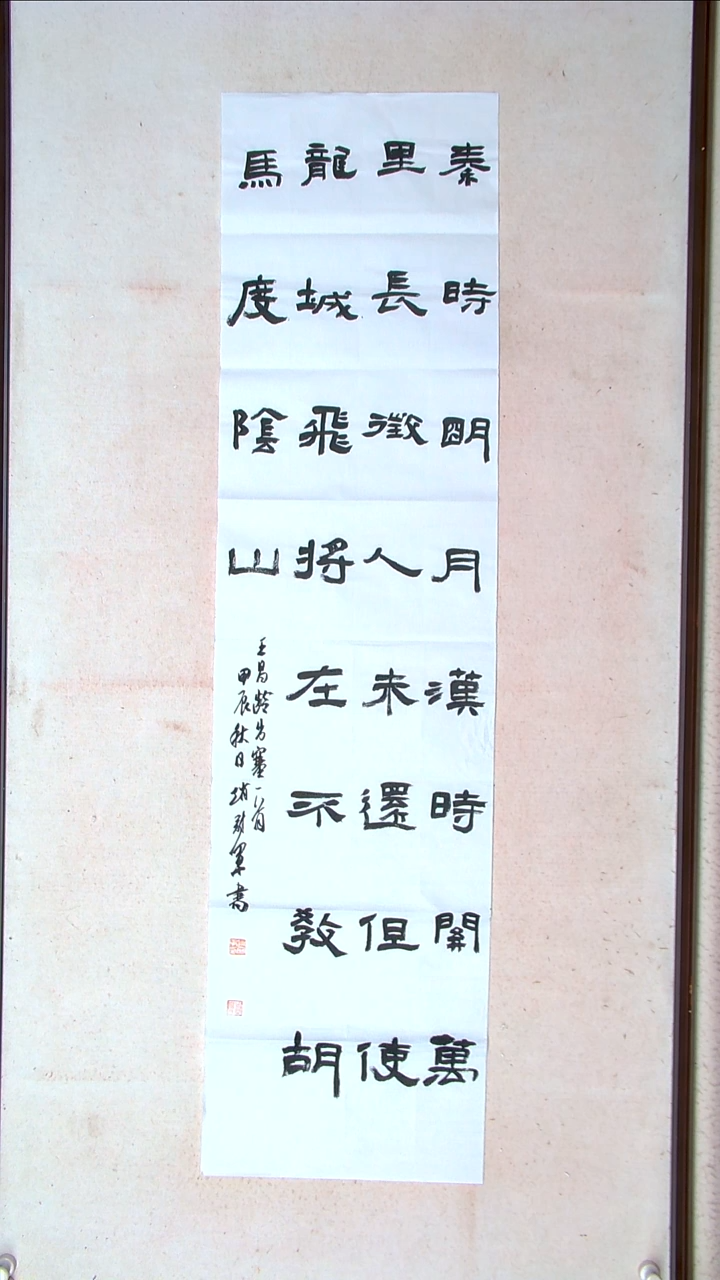 秦時明月漢時關萬
里長徵人未還但使
龍城飛將在不敎胡
馬度陰山
王昌龄出塞一首
甲辰秋日 書